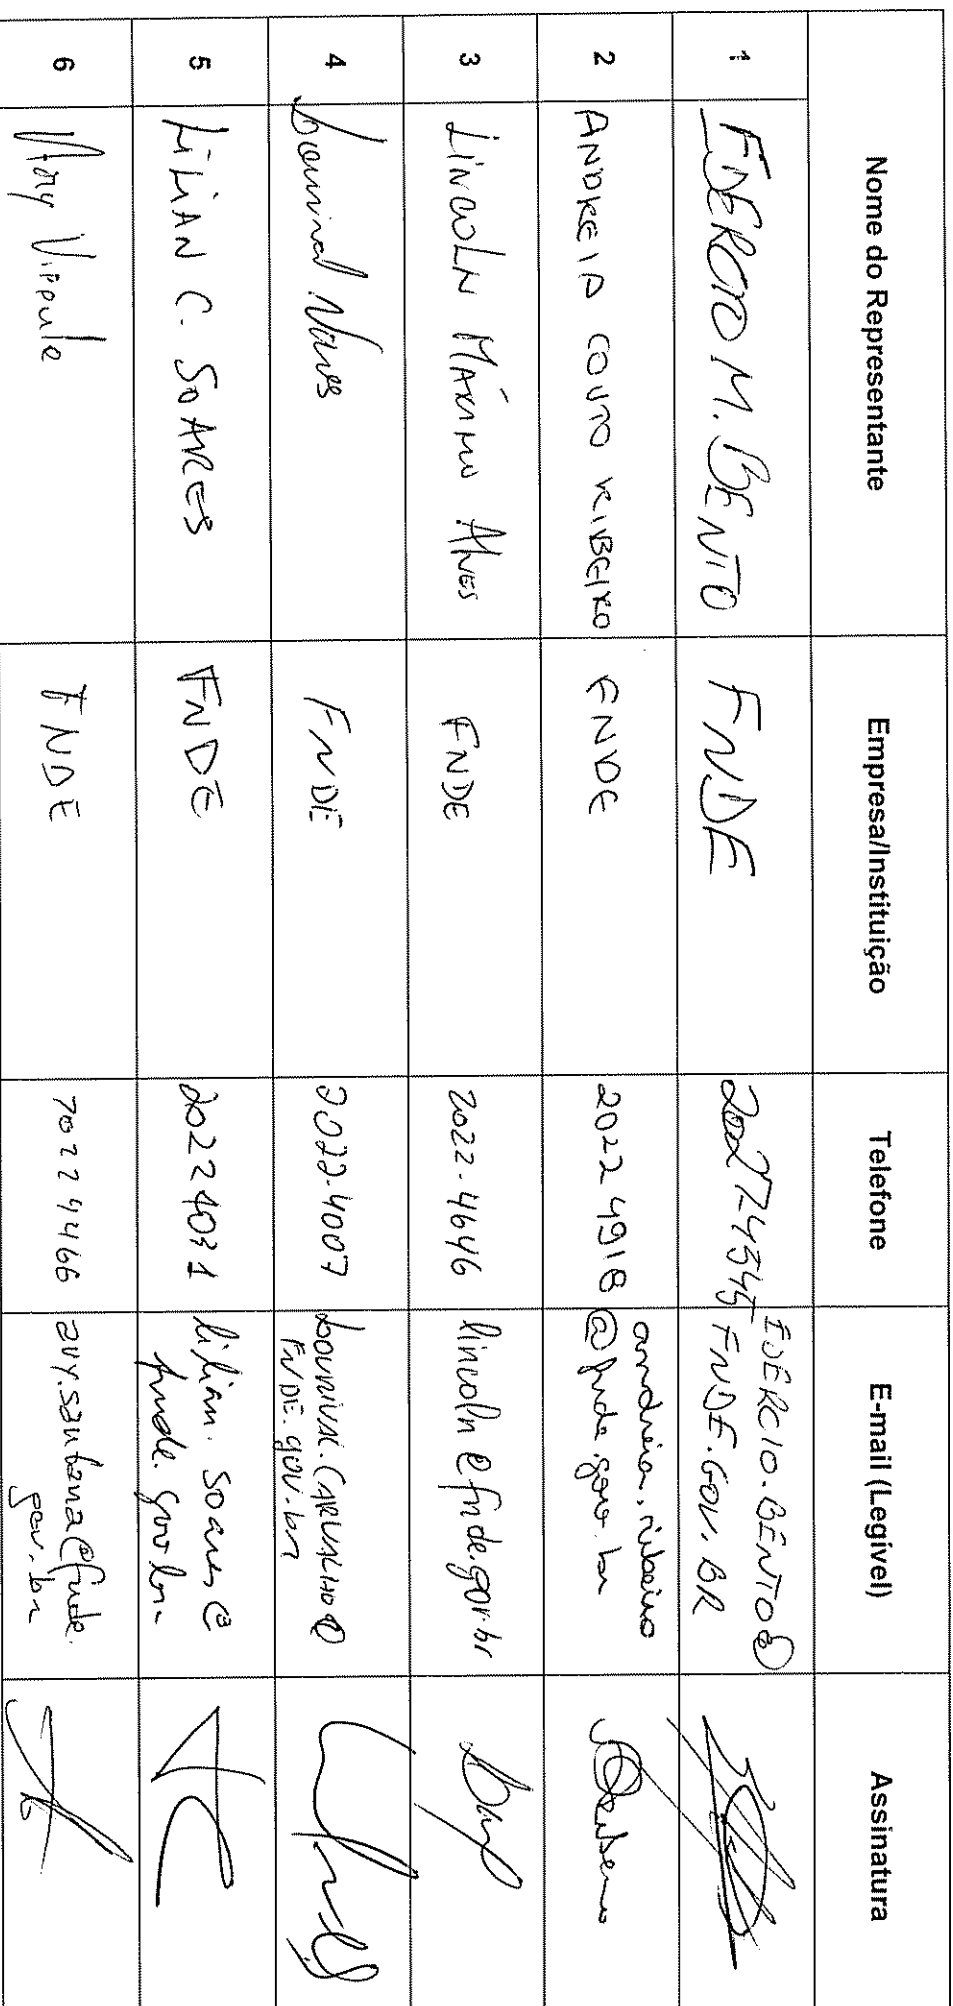 Nome do Representante Empresa/Instituição Telefone E-mail (Legível) Assinatura
1 EDERCIO M. BENTO FNDE EDERCIO.BENTO@
FNDE.GOV.BR
2 ANDREIA COUTO RIBEIRO FNDE 2022 4918 andreia.ribeiro
@fnde.gov.br
3 LINCOLN MÁXIMO ALVES FNDE 2022-4646 lincoln@fnde.gov.br
4 Lourival Nunes FNDE 2022-4007 LOURIVAL.CARVALHO@
FNDE.gov.br
5 LILIAN C. SOARES FNDE 20224031 lilian.soares@
fnde.gov.br
6 FNDE 20224466
gov.br